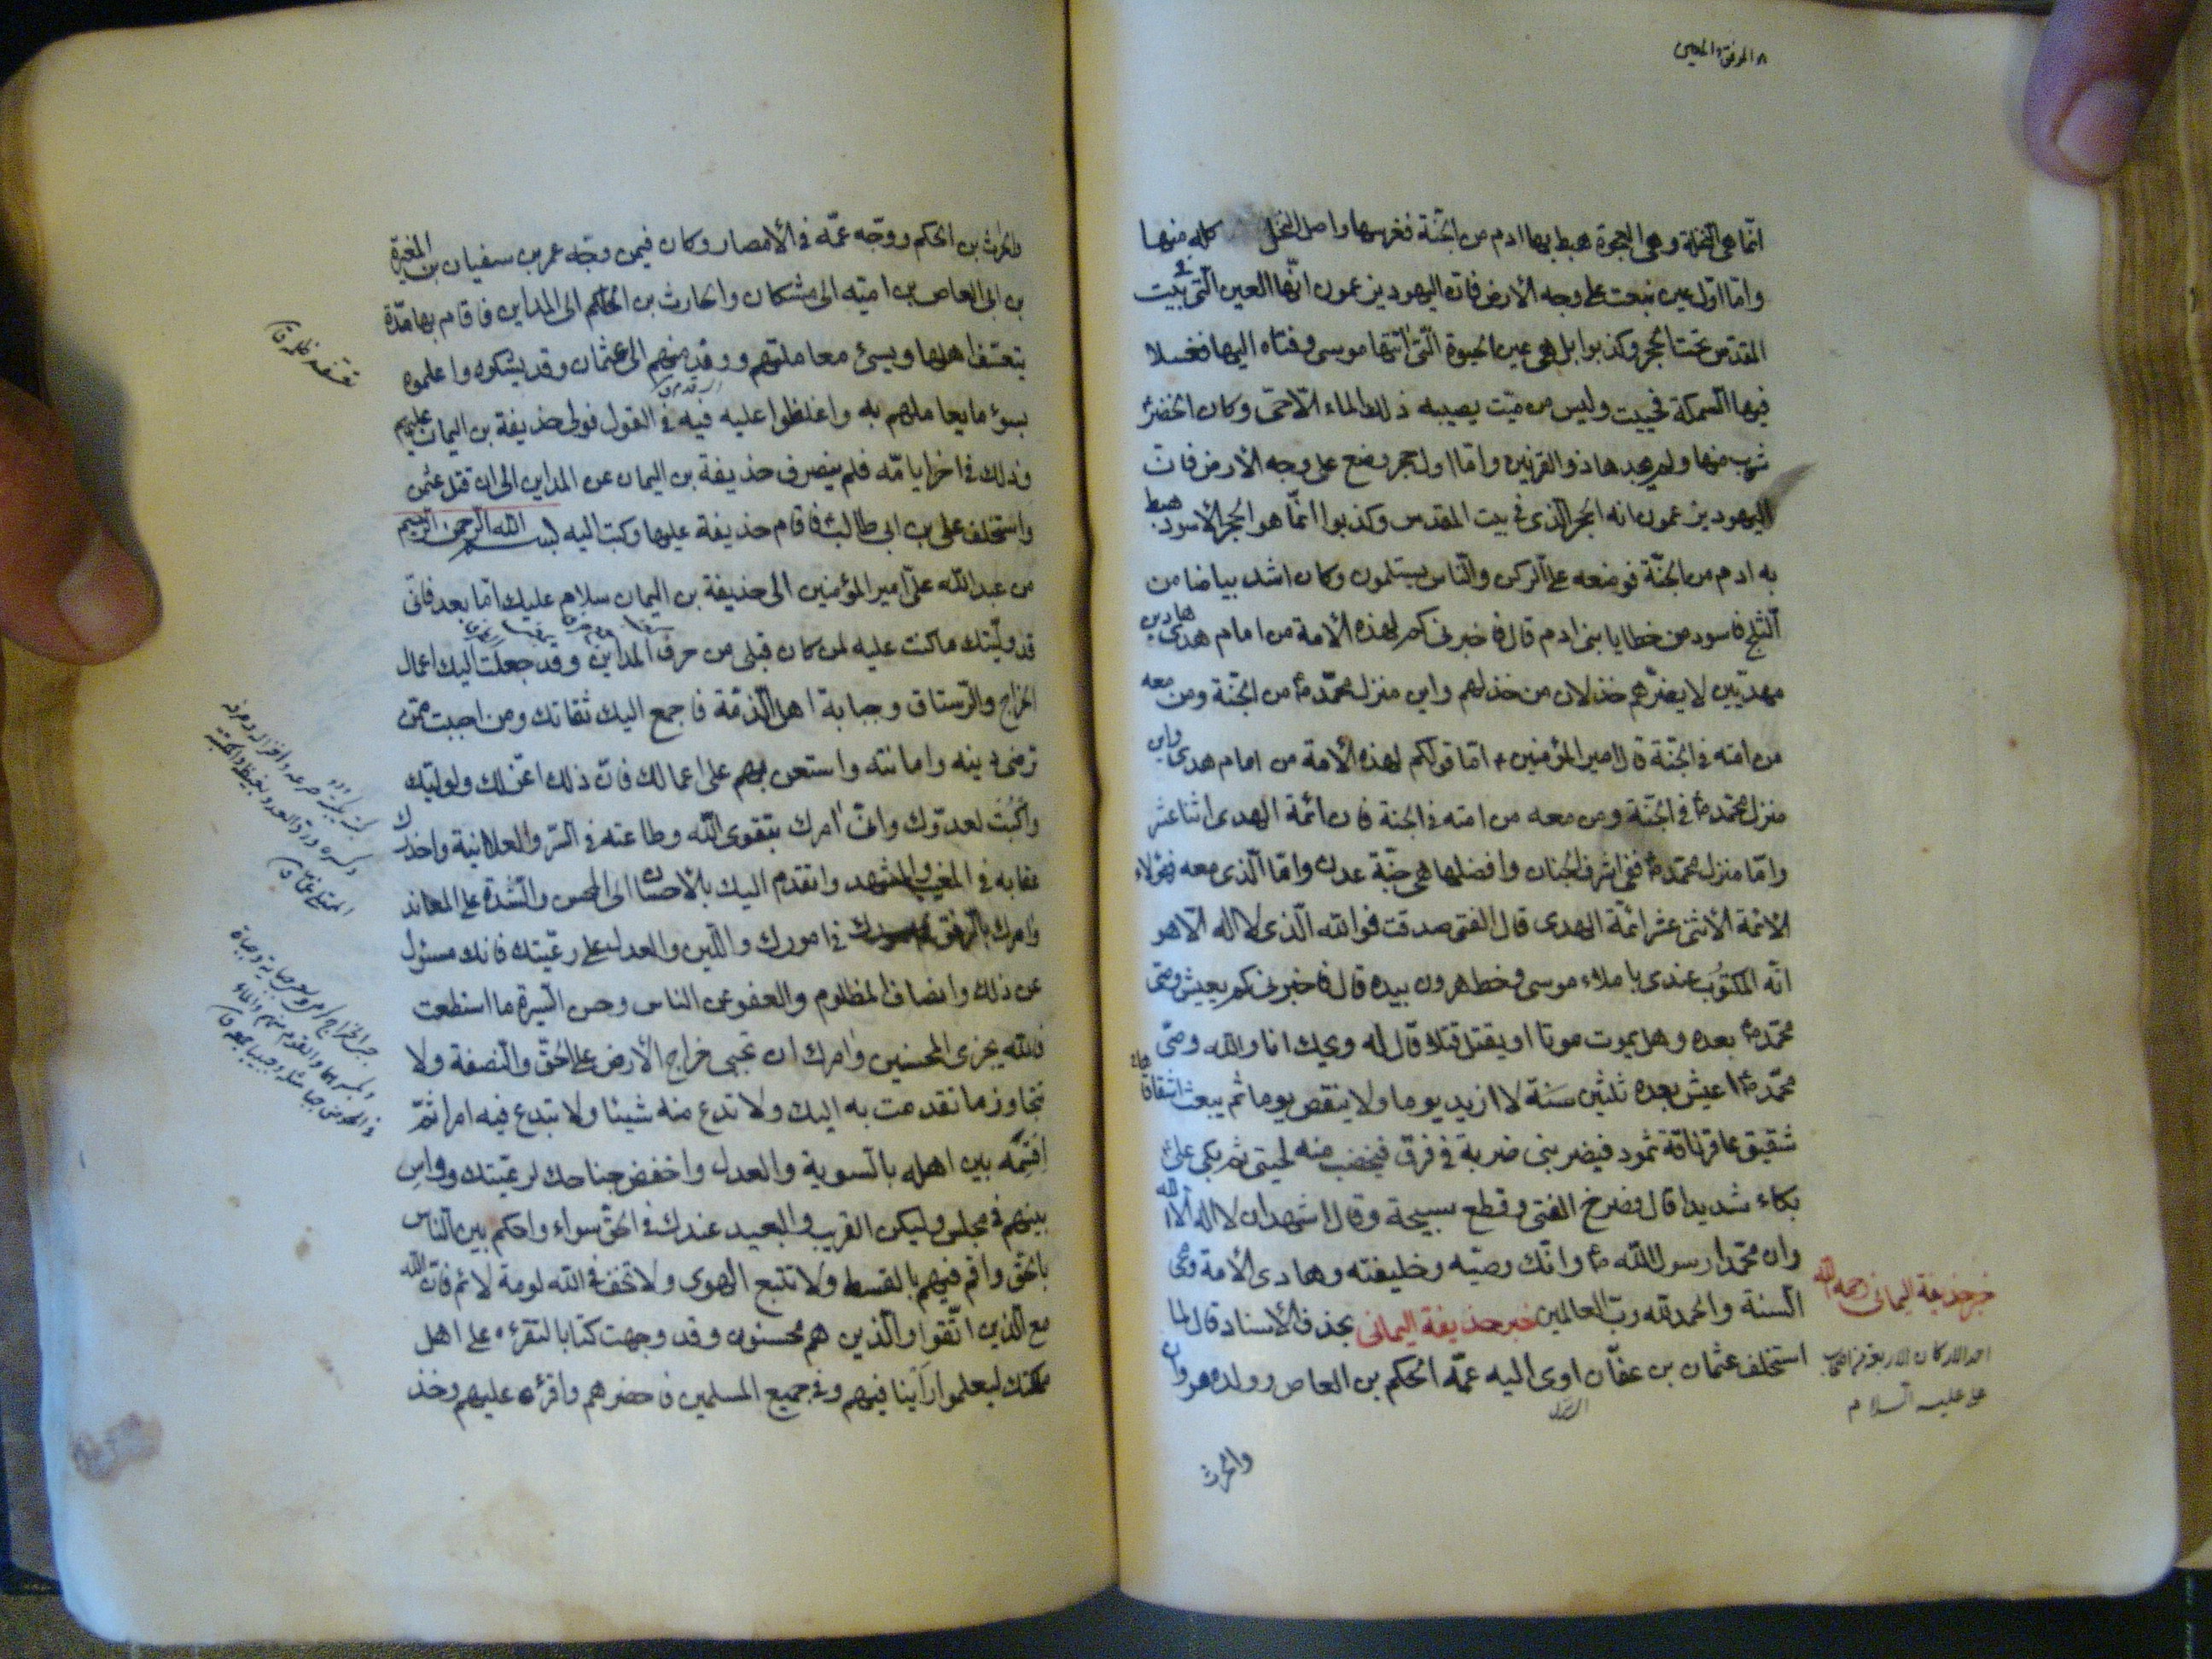 انما هى النخلة وهى العجوة هبط بها ادم من الجنة فغرسها واصل النخل كله منها
واما اول عين نبعت على وجه الأرض فان اليهود يزعمون انها العين التى فى بيت
المقدس تحت الحجر وكذبوا بل هى عين الحيوة التى انتها موسى وفتاه اليها فغسلا
فيها السمكة فحييت وليس من ميت يصيبه ذلك الماء الاحى وكان الخضر
شرب منها ولم يجدها ذو القرنين واما اول حجر وضع على وجه الأرض فان
اليهود يزعمون انه الحجر الذى فى بيت المقدس وكذبوا انما هو الحجر الأسود هبط
به ادم من الجنة فوضعه على الركن والناس يستلمون وكان اشد بياضا من
الثلج فاسود من خطايا بنى ادم قال فاخبرنى كم لهذه الأمة من امام هدى هادين
مهديين لا يضرهم خذلان من خذلهم واين منزل محمد ص من الجنة ومن معه
من امته فى الجنة قال امير المؤمنين اما قولكم لهذه الأمة من امام هدى واين
منزل محمد ص فى الجنة ومن معه من امته فى الجنة فان ائمة الهدى اثنا عشر
واما منزل محمد ص ففى اشرف الجنان وافضلها هى جنة عدن واما الذى معه فهؤلاء
الائمة الأثنى عشر ائمة الهدى قال الفتى صدقت فوالله الذى لا اله الا هو
انه المكتوب عندى باملاء موسى وخط هرون بيده قال فاخبرنى كم يعيش وصى
محمد ص بعده وهل يموت موتا او يقتل قتلا قال له ويحك انا والله وصى
محمد ص اعيش بعده ثلثين سنة لا ازيد يوما ولا ينقص يوما ثم يبعث اشقاها
شقيق عاقر ناقة ثمود فيضربنى ضربة فى فرقى فيخضب منه لحيتى ثم بكى على
بكاء شديدا قال وصرخ الفتى وقطع سبيحة وقال اشهد ان لا اله الا الله
وان محمدا رسول الله ص وانك وصيه وخليفته وهادى الأمة ومحى
السنة والحمد لله رب العالمين خبر حذيفة اليمانى بحذف الأسناد قال لما
استخلف عثمان بن عفان اوى اليه عمه الحكم بن العاص وولده مروان
خبر حذيفة اليمانى رحمه الله
احد الاركان الاربعة من اصحاب
على عليه السلام
والحرث
والحرث بن الحكم ووجه عمه فى الأمصار وكان فيمن وجه عمر بن سفيان بن المغيرة
بن ابى العاص بن امية الى مشكان والحارث بن الحكم الى المداين فاقام بها مدة
يتعسف اهلها ويسئ معاملتهم ووفد منهم الى عثمان وفد يشكوه واعلموه
بسوء ما يعاملهم به واغلظوا عليه فيه فى القول فولى حذيفة بن اليمان عليهم
وذلك فى اخر ايامه فلم ينصرف حذيفة بن اليمان عن المداين الى ان قتل عثمن
واستخلف على بن ابى طالب فاقام حذيفة عليها وكتب اليه بسم الله الرحمن الرحيم
من عبد الله على امير المؤمنين الى حذيفة بن اليمان سلام عليك اما بعد فانى
قد وليتك ما كنت عليه لمن كان قبلى من حرف المداين وقد جعلت اليك اعمال
الخراج والرستاق وجباية اهل الذمة فاجمع اليك ثقاتك ومن احببت ممن
ترضى دينه وامانته واستعن بهم على اعمالك فان ذلك اعز لك ولوليك
واكبت لعدوك وانى امرك بتقوى الله وطاعته فى السر والعلانية واحذرك
عقابه فى المغيب والمشهد واتقدم اليك بالأحسان الى المحسن والشدة على المعاند
وامرك بالرفق فى امورك واللين والعدل على رعيتك فانك مسئول
عن ذلك وانصاف المظلوم والعفو عن الناس وحسن السيرة ما استطعت
فالله يجزى المحسنين وامرك ان تجبى خراج الأرض على الحق والنصفة ولا
تتجاوز ما تقدمت به اليك ولا تدع منه شيئا ولا تبتدع فيه امرا ثم
اقسمه بين اهله بالسوية والعدل واخفض جناحك لرعيتك وواس
بينهم فى مجلس وليكن القريب والبعيد عندك فى الحق سواء واحكم بين الناس
بالحق واقم فيهم بالقسط ولا تتبع الهوى ولا تخف فى الله لومة لائم فان الله
مع الذين اتقوا والذين هم محسنون وقد وجهت كتابا لتقرءه على اهل
مملكتك ليعلموا راينا فيهم وفى جميع المسلمين فاحضرهم واقرء عليهم وخذ